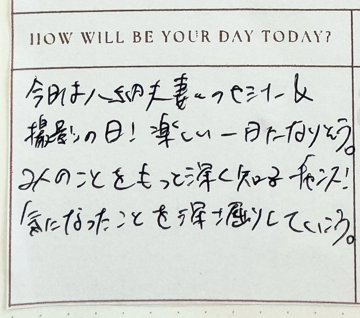 HOW WILL BE YOUR DAY TODAY?
今日は八納夫妻とのセミナー&
撮影の日！楽しい一日になりそう。
2人のことをもっと深く知るチャンス！
気になったことを深堀りしていこう。